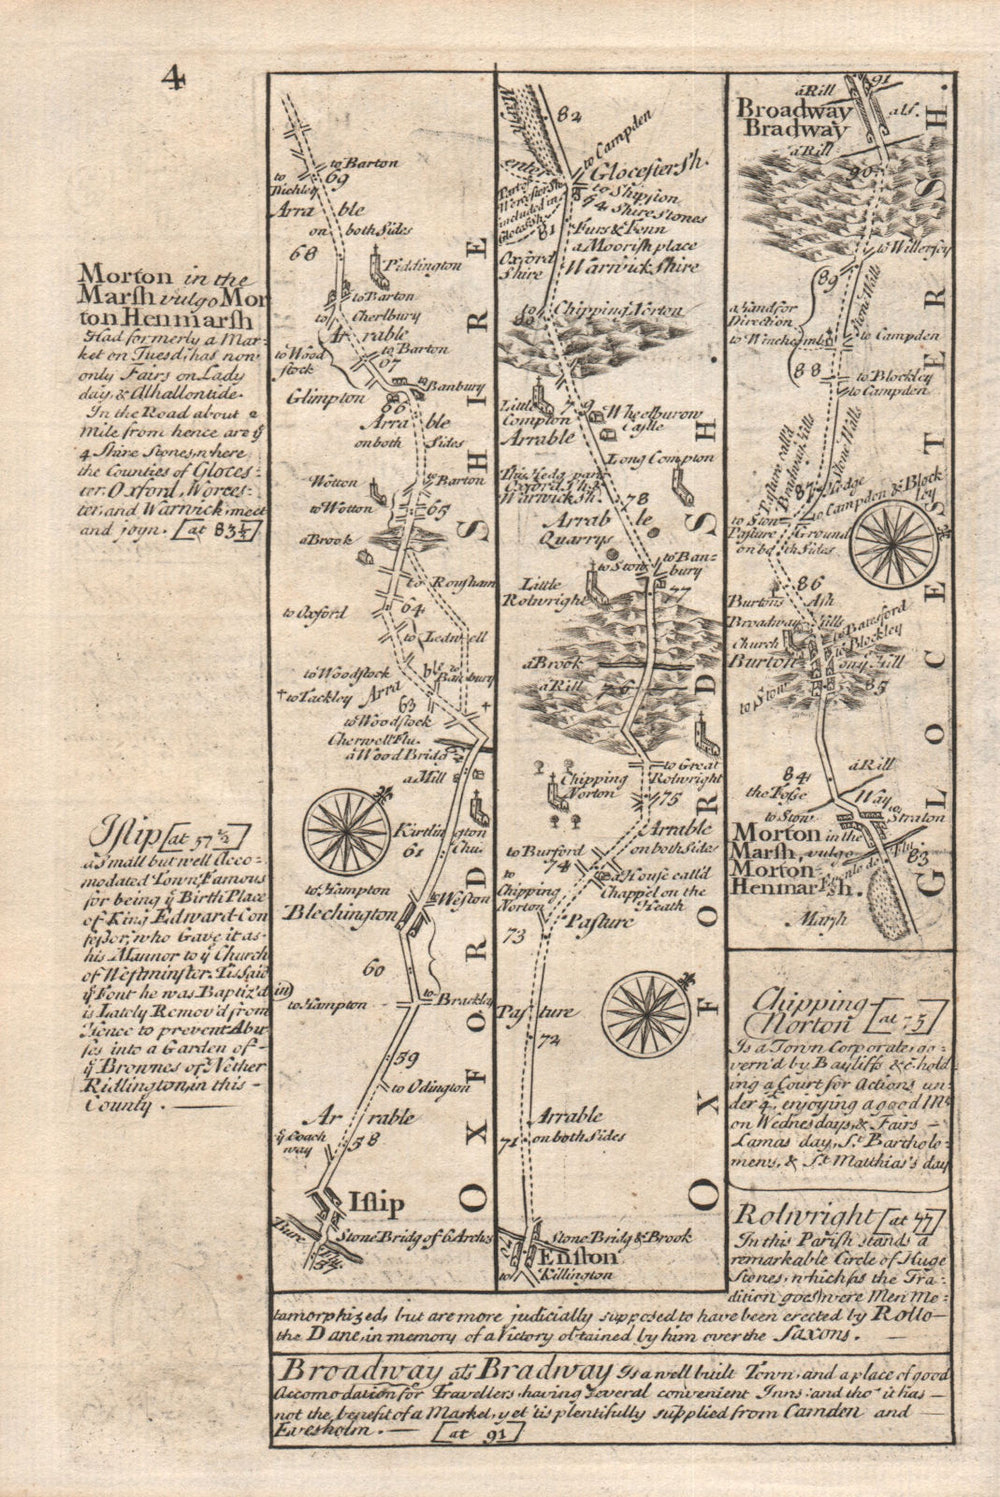 4
Morton in the
Marsh vulgo Mor
ton Henmarsh
Had formerly a Mar-
ket on Tuesd: has now
only Fairs on Lady
day, & Alhallontide.
In the Road about a
Mile from hence are ye
4 Shire Stones, where
the Counties of Gloces-
ter, Oxford, Worces-
ter, and Warwick, meet
and joyn. [at 83¼]
Islip [at 57½]
a Small but well Acco-
modated Town, Famous
for being ye Birth Place
of King Edward Con
fessor, who Gave it as
his Mannor to ye Church
of Westminster. Tis Said
ye Font he was Baptiz'd in)
is Lately Remov'd from
hence to prevent Abu-
ses into a Garden of
ye Brownes of Nether
Ridlington, in this
County.
to Barton
69
to
Arra ble
on both Sides
68
Piddington
to Barton
to
Cherlbury
Arrable
to Wood
stock
to Barton
67
Banbury
Glimpton
66
Arra ble
on both Sides
Wotton
to Barton
to Wotton
65
a Brook
to Rousham
to Oxford
64
to Ledwell
to Woodstock
ble to
Banbury
to Tackley
Arra
63
to Woodstock
Cherwell Flu.
a Wood Bridg
a Mill
Kirtlington
61
Chu:
to Hampton
to Weston
Blechington
60
to Hampton
to
Brackley
59
to Odington
Ar rable
ye Coach
way
58
Islip
Stone Bridg of 6 Arches
57
OXFORD SHIRE
82
to Campden
Glocestersh.
Part of
Worcestersh.
included in
Glocessh.
to Shipston
4 Shire Stones
81
Furs & Fenn
a Moorish place
Oxford
Shire
Warwick Shire
to Chipping Norton
80
Little
Compton
79
Wheelburow
Castle
Arrable
Long Compton
This Hedg parts
Oxford Sh. &
Warwick sh.
78
Arrab le
Quarrys
to Stow
to Ban-
bury
77
Little
Rolwright
a Brook
a Rill
76
to Great
Rolwright
Chipping
Norton
75
Arrable
on both Sides
to Burford
74
a House call'd
Chappel on the
Heath
to
Chipping
Norton
73
Pasture
Pas ture
72
Arrable
on both Sides
71
Stone Bridg & Brook
Enston
to
Killington
OXFORDSH.
91
a Rill
Broadway
als.
Bradway
a Rill
90
to Willersey
89
a Hand for
Direction
to Winchcomb
Stone Walls
to Campden
88
to Blockley
to Campden
Stone Walls
Pasture call'd
Bradway Hills
87
Hedge
to Campden & Block
ley
to Stow
Pasture Ground
on both Sides
86
Burtons Ash
Broadway Hills
to Batesford
to Blockley
Church
Burton
on ye Hill
to Stow
85
84
a Rill
the Fosse
Way
to Stow
to
Straton
Morton in the
Marsh, vulgo
Morton
Henmarsh.
83
Marsh
GLOCESTERSH.
Chipping
Norton [at 75]
Is a Town Corporate, go-
vern'd by Bayliffs &c hold
ing a Court for Actions un-
der 4£, enjoying a good Mt
on Wednesdays, & Fairs
Lamas day, St. Bartholo-
mews, & St. Matthias's day
Rolwright [at 77]
In this Parish stands a
remarkable Circle of Huge
Stones, which (as the Tra-
dition goes) were Men Me-
tamorphized, but are more judicially supposed to have been erected by Rollo
the Dane, in memory of a Victory obtained by him over the Saxons.
Broadway als Bradway Is a well built Town, and a place of good
Accomodation for Travellers, having several convenient Inns: and tho' it has
not the benefit of a Market, yet 'tis plentifully supplied from Camden and
Evesholm. [at 91]